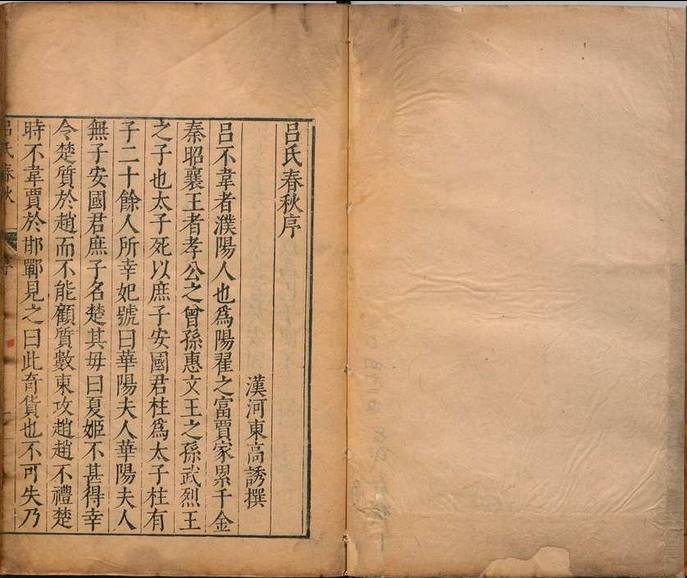 呂氏春秋序
漢河東高誘撰
呂不韋者濮陽人也爲陽翟之富賈家累千金
秦昭襄王者孝公之曾孫惠文王之孫武烈王
之子也太子死以庶子安國君柱爲太子柱有
子二十餘人所幸妃號曰華陽夫人華陽夫人
無子安國君庶子名楚其母曰夏姬不甚得幸
令楚質於趙而不能顧質數東攻趙趙不禮楚
時不韋賈於邯鄲見之曰此奇貨也不可失乃
呂氏春秋
序